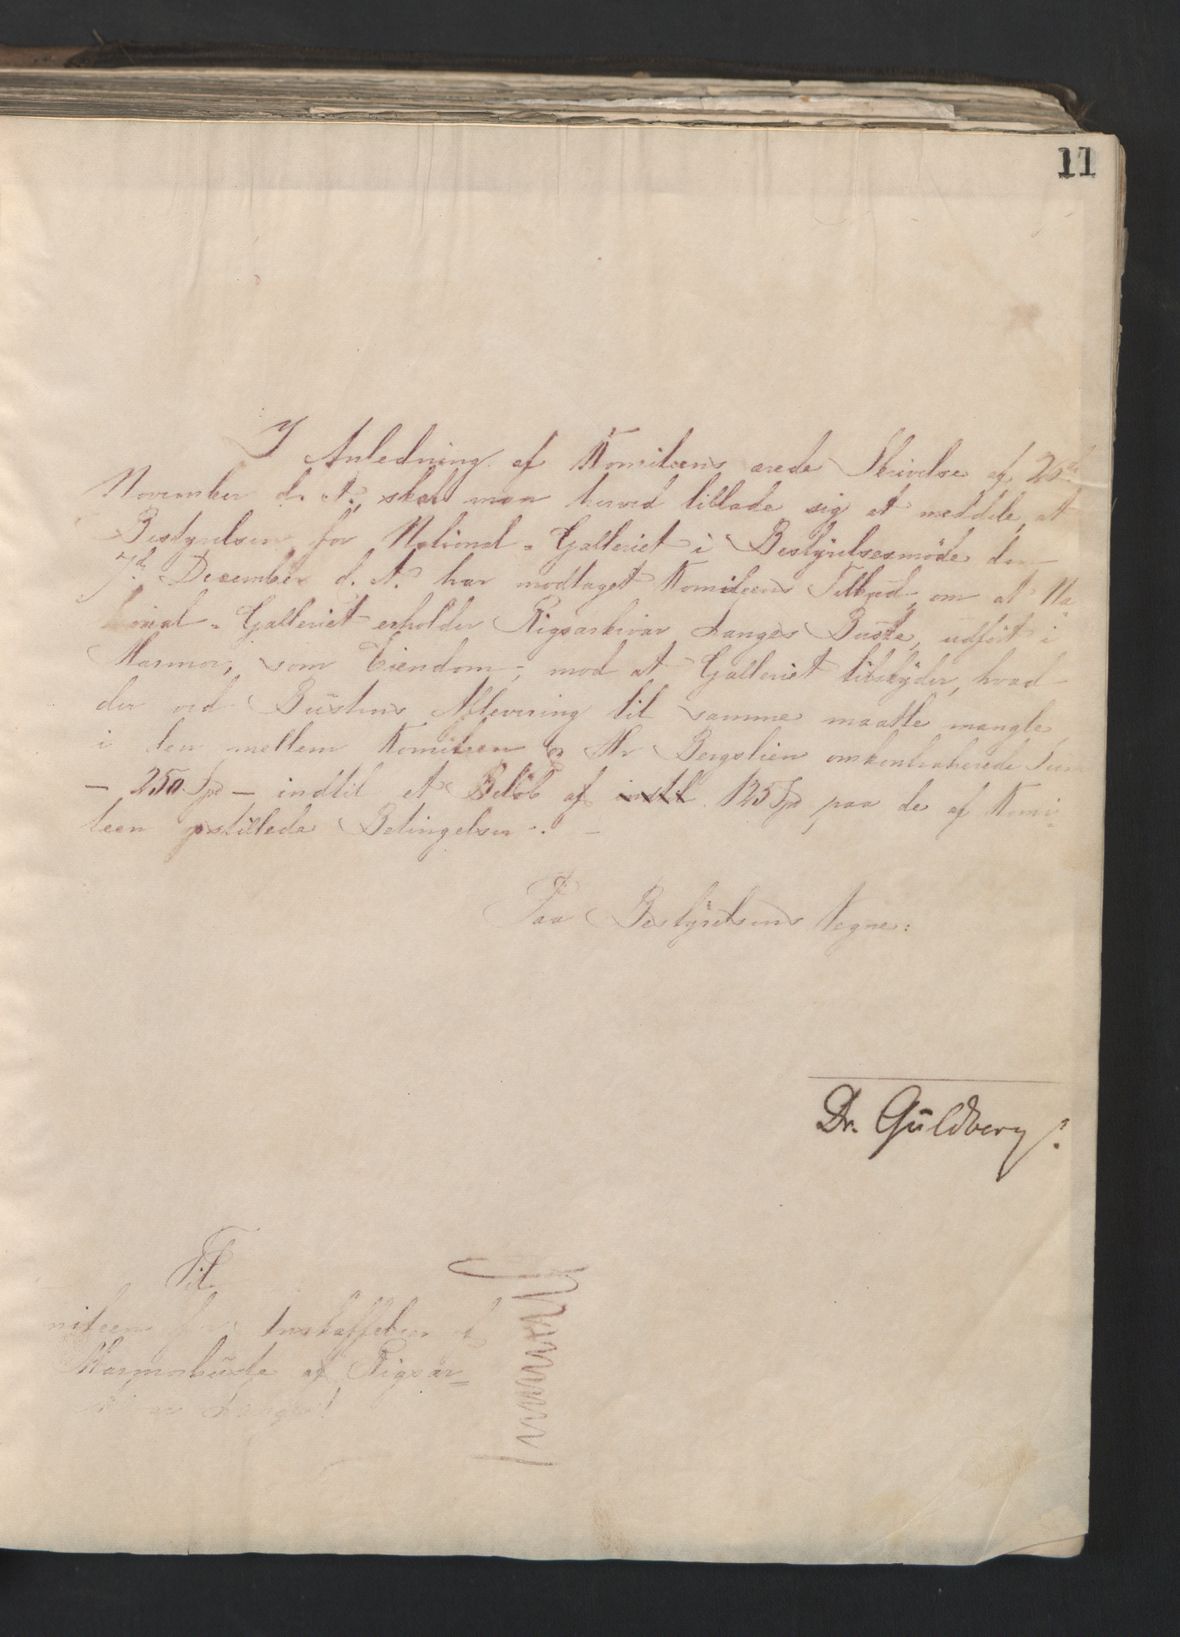 11
I Anledning af Komiteens ærede Skrivelse af 20de
November d. A., skal man herved tillade sig at meddele, at
Bestyrelsen for National-Galleriet i Bestyrelsesmöde den
7de December d. A. har modtaget Komiteens Tilbud, om at Na-
tional-Galleriet erholder Rigsarkivar Langes Buste, udfört i
Marmor, som Eiendom, mod at Galleriet tilskyder, hvad
der ved Bustens Aflevering til samme maatte mangle
i den mellem Komiteen og Hr Bergslien omkontraherede Sum
– 250 Spd – indtil et Belöb af indtil 125 Spd, paa de af Komi-
teen opstillede Betingelser. –
Paa Bestyrelsens Vegne:
Dr. Guldberg
Til
miteen for Anskaffelse af
Marmorbuste af Rigsar-
kivar Lange!